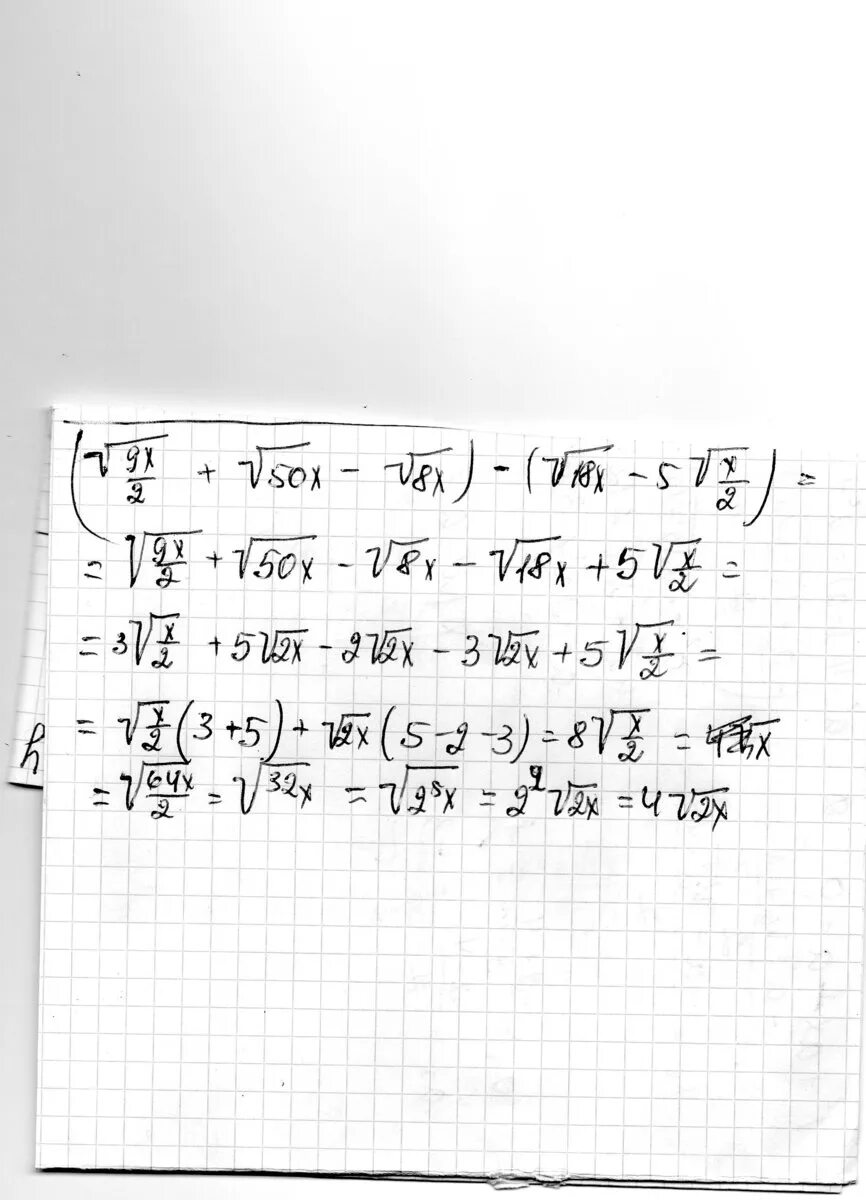 (√(9x/2) + √50x − √8x) − (√18x − 5√(x/2)) =
= √(9x/2) + √50x − √8x − √18x + 5√(x/2) =
= 3√(x/2) + 5√2x − 2√2x − 3√2x + 5√(x/2) =
= √(x/2) (3+5) + √2x (5−2−3) = 8√(x/2) =
= √(64x/2) = √32x = √2⁵x = 2² √2x = 4√2x
h